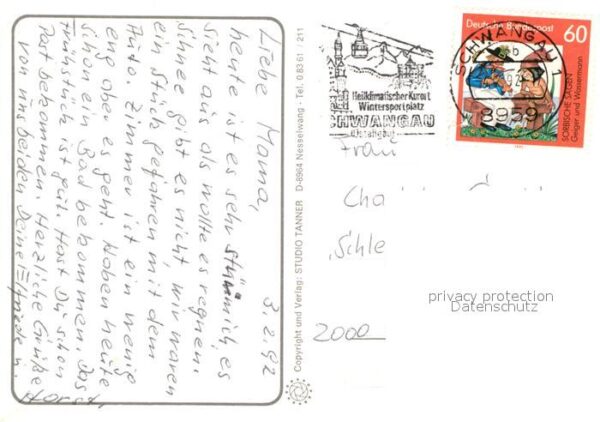 3.2.92
Liebe Mama,
heute ist es sehr stürmisch, es
sieht aus als wollte es regnen.
Schnee gibt es nicht, wir waren
ein Stück gefahren mit dem
Auto. Zimmer ist ein wenig
eng aber es geht. Haben heute
schon ein Bad bekommen. Das
Frühstück ist gut. Hast Du schon
Post bekommen. Herzliche Grüße
von uns beiden Deine Elfriede u.
Horst
Copyright und Verlag: STUDIO TANNER D-8964 Nesselwang · Tel. 0 83 61 / 211
Heilklimatischer Kurort
Wintersportplatz
SCHWANGAU
SCHWANGAU 1
8959
Deutsche Bundespost
60
SORBISCHE SAGEN
Geiger und Wassermann
Frau
Cha
Schle
2000
privacy protection
Datenschutz